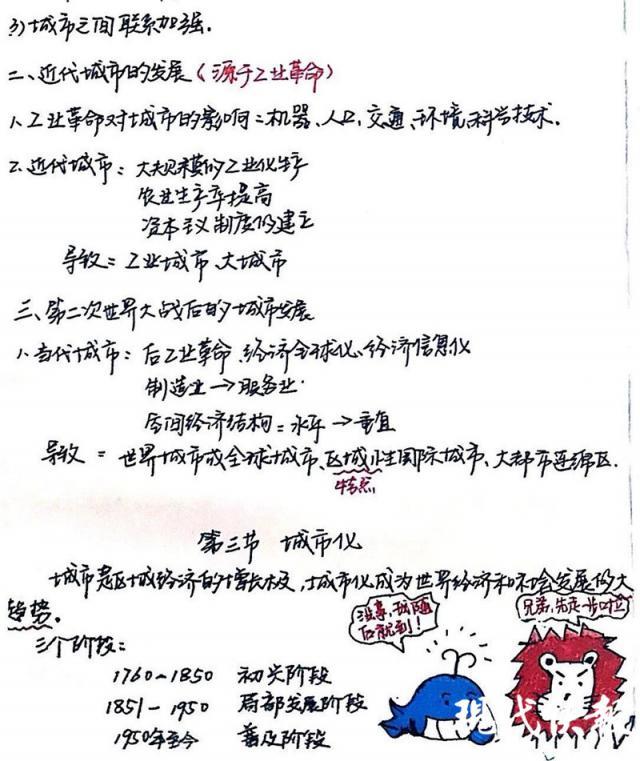 3)城市之间联系加强.
二、近代城市的发展(源于工业革命)
1、工业革命对城市的影响:机器、人口、交通、环境、科学技术.
2.近代城市:大规模的工业化生产
农业生产率提高
资本主义制度的建立
导致=工业城市、大城市
三、第二次世界大战后的城市发展
1、当代城市:后工业革命、经济全球化、经济信息化
制造业→服务业.
空间经济结构=水平→垂直
导致=世界城市或全球城市、区域性国际城市、大都市连绵区.
特点
第三节 城市化
城市是区域经济的增长极,城市化成为世界经济和社会发展的大
趋势。
三个阶段:
没事,我随
后就到!
兄弟,先走一步
1760~1850 初兴阶段
1851-1950 局部发展阶段
1950年至今 普及阶段
现代快报